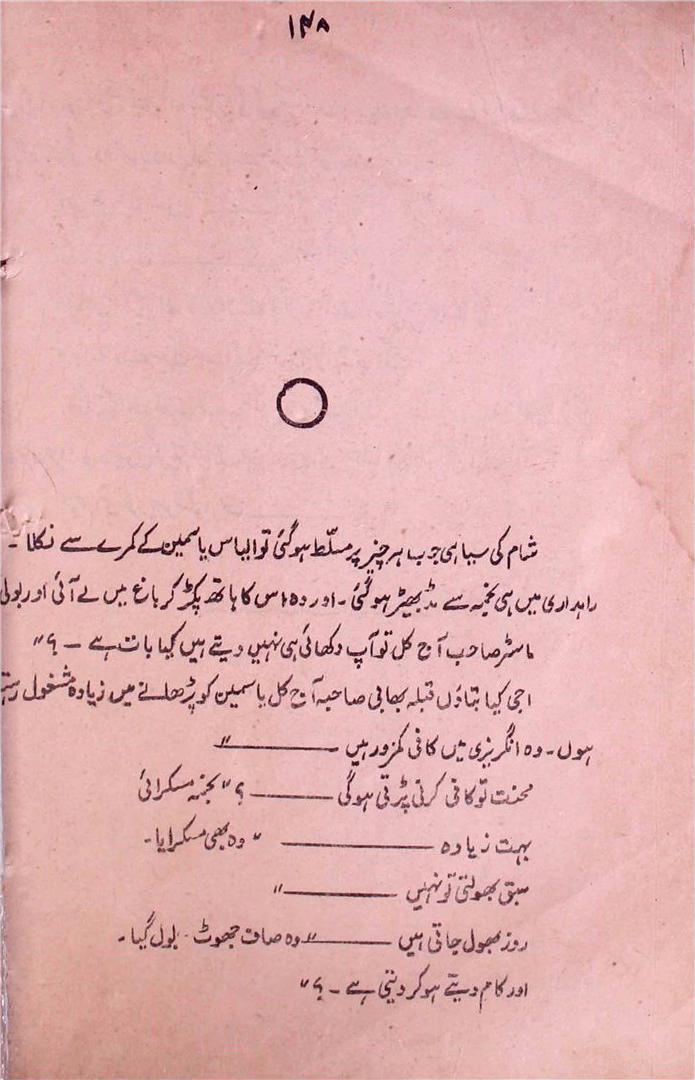 ۱۴۸
شام کی سیاہی جب ہر چیز پر مسلّط ہوگئی تو الیاس یاسمین کے کمرے سے نکلا۔
راہداری میں ہی نجمہ سے مڈ بھیڑ ہوگئی۔ اور وہ اس کا ہاتھ پکڑ کر باغ میں لے آئی اور بولی
ماسٹر صاحب آج کل تو آپ دکھائی ہی نہیں دیتے ہیں کیا بات ہے ۔ ؟"
اجی کیا بتاؤں قبلہ بھابی صاحبہ آج کل یاسمین کو پڑھانے میں زیادہ مشغول رہتا
ہوں۔ وہ انگریزی میں کافی کمزور ہیں ــــــــــ "
محنت تو کافی کرنی پڑتی ہوگی ــــــــــ ؟" نجمہ مسکرائی
بہت زیادہ ــــــــــ " وہ بھی مسکرایا۔
سبق بھولتی تو نہیں ــــــــــ "
روز بھول جاتی ہیں ــــــــــ " وہ صاف جھوٹ بول گیا۔
اور کام دیتے ہو کر دیتی ہے ۔ ؟"